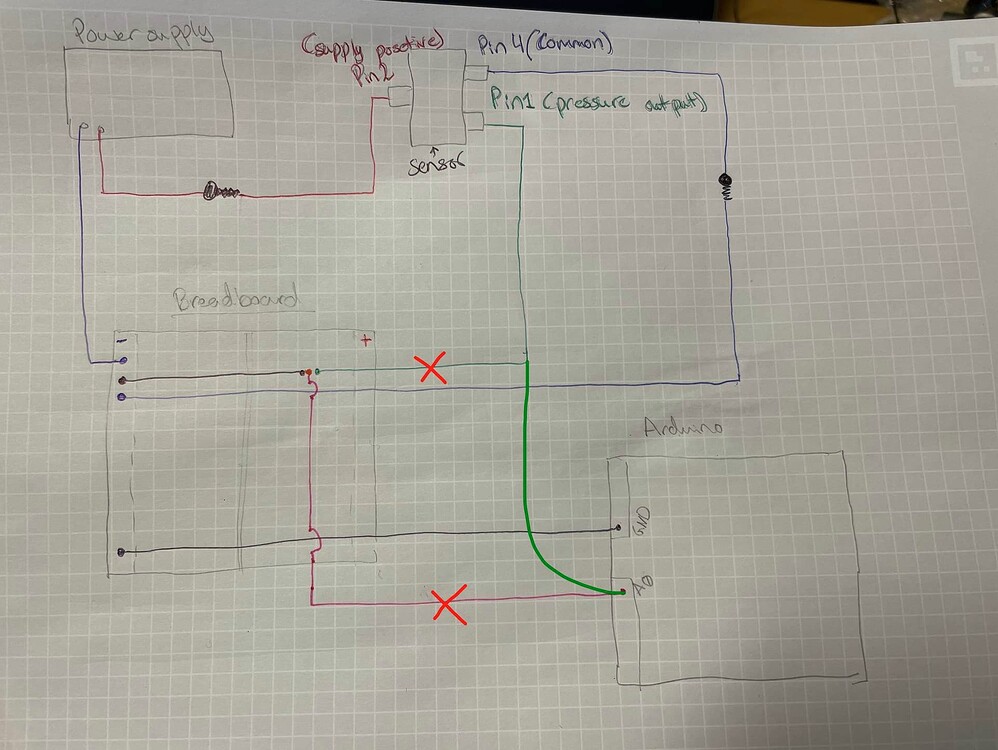 Power supply
(supply posetive)
Pin2
Pin4 (Common)
Pin1 (pressure output)
sensor
Breadboard
-
+
Arduino
GND
A0